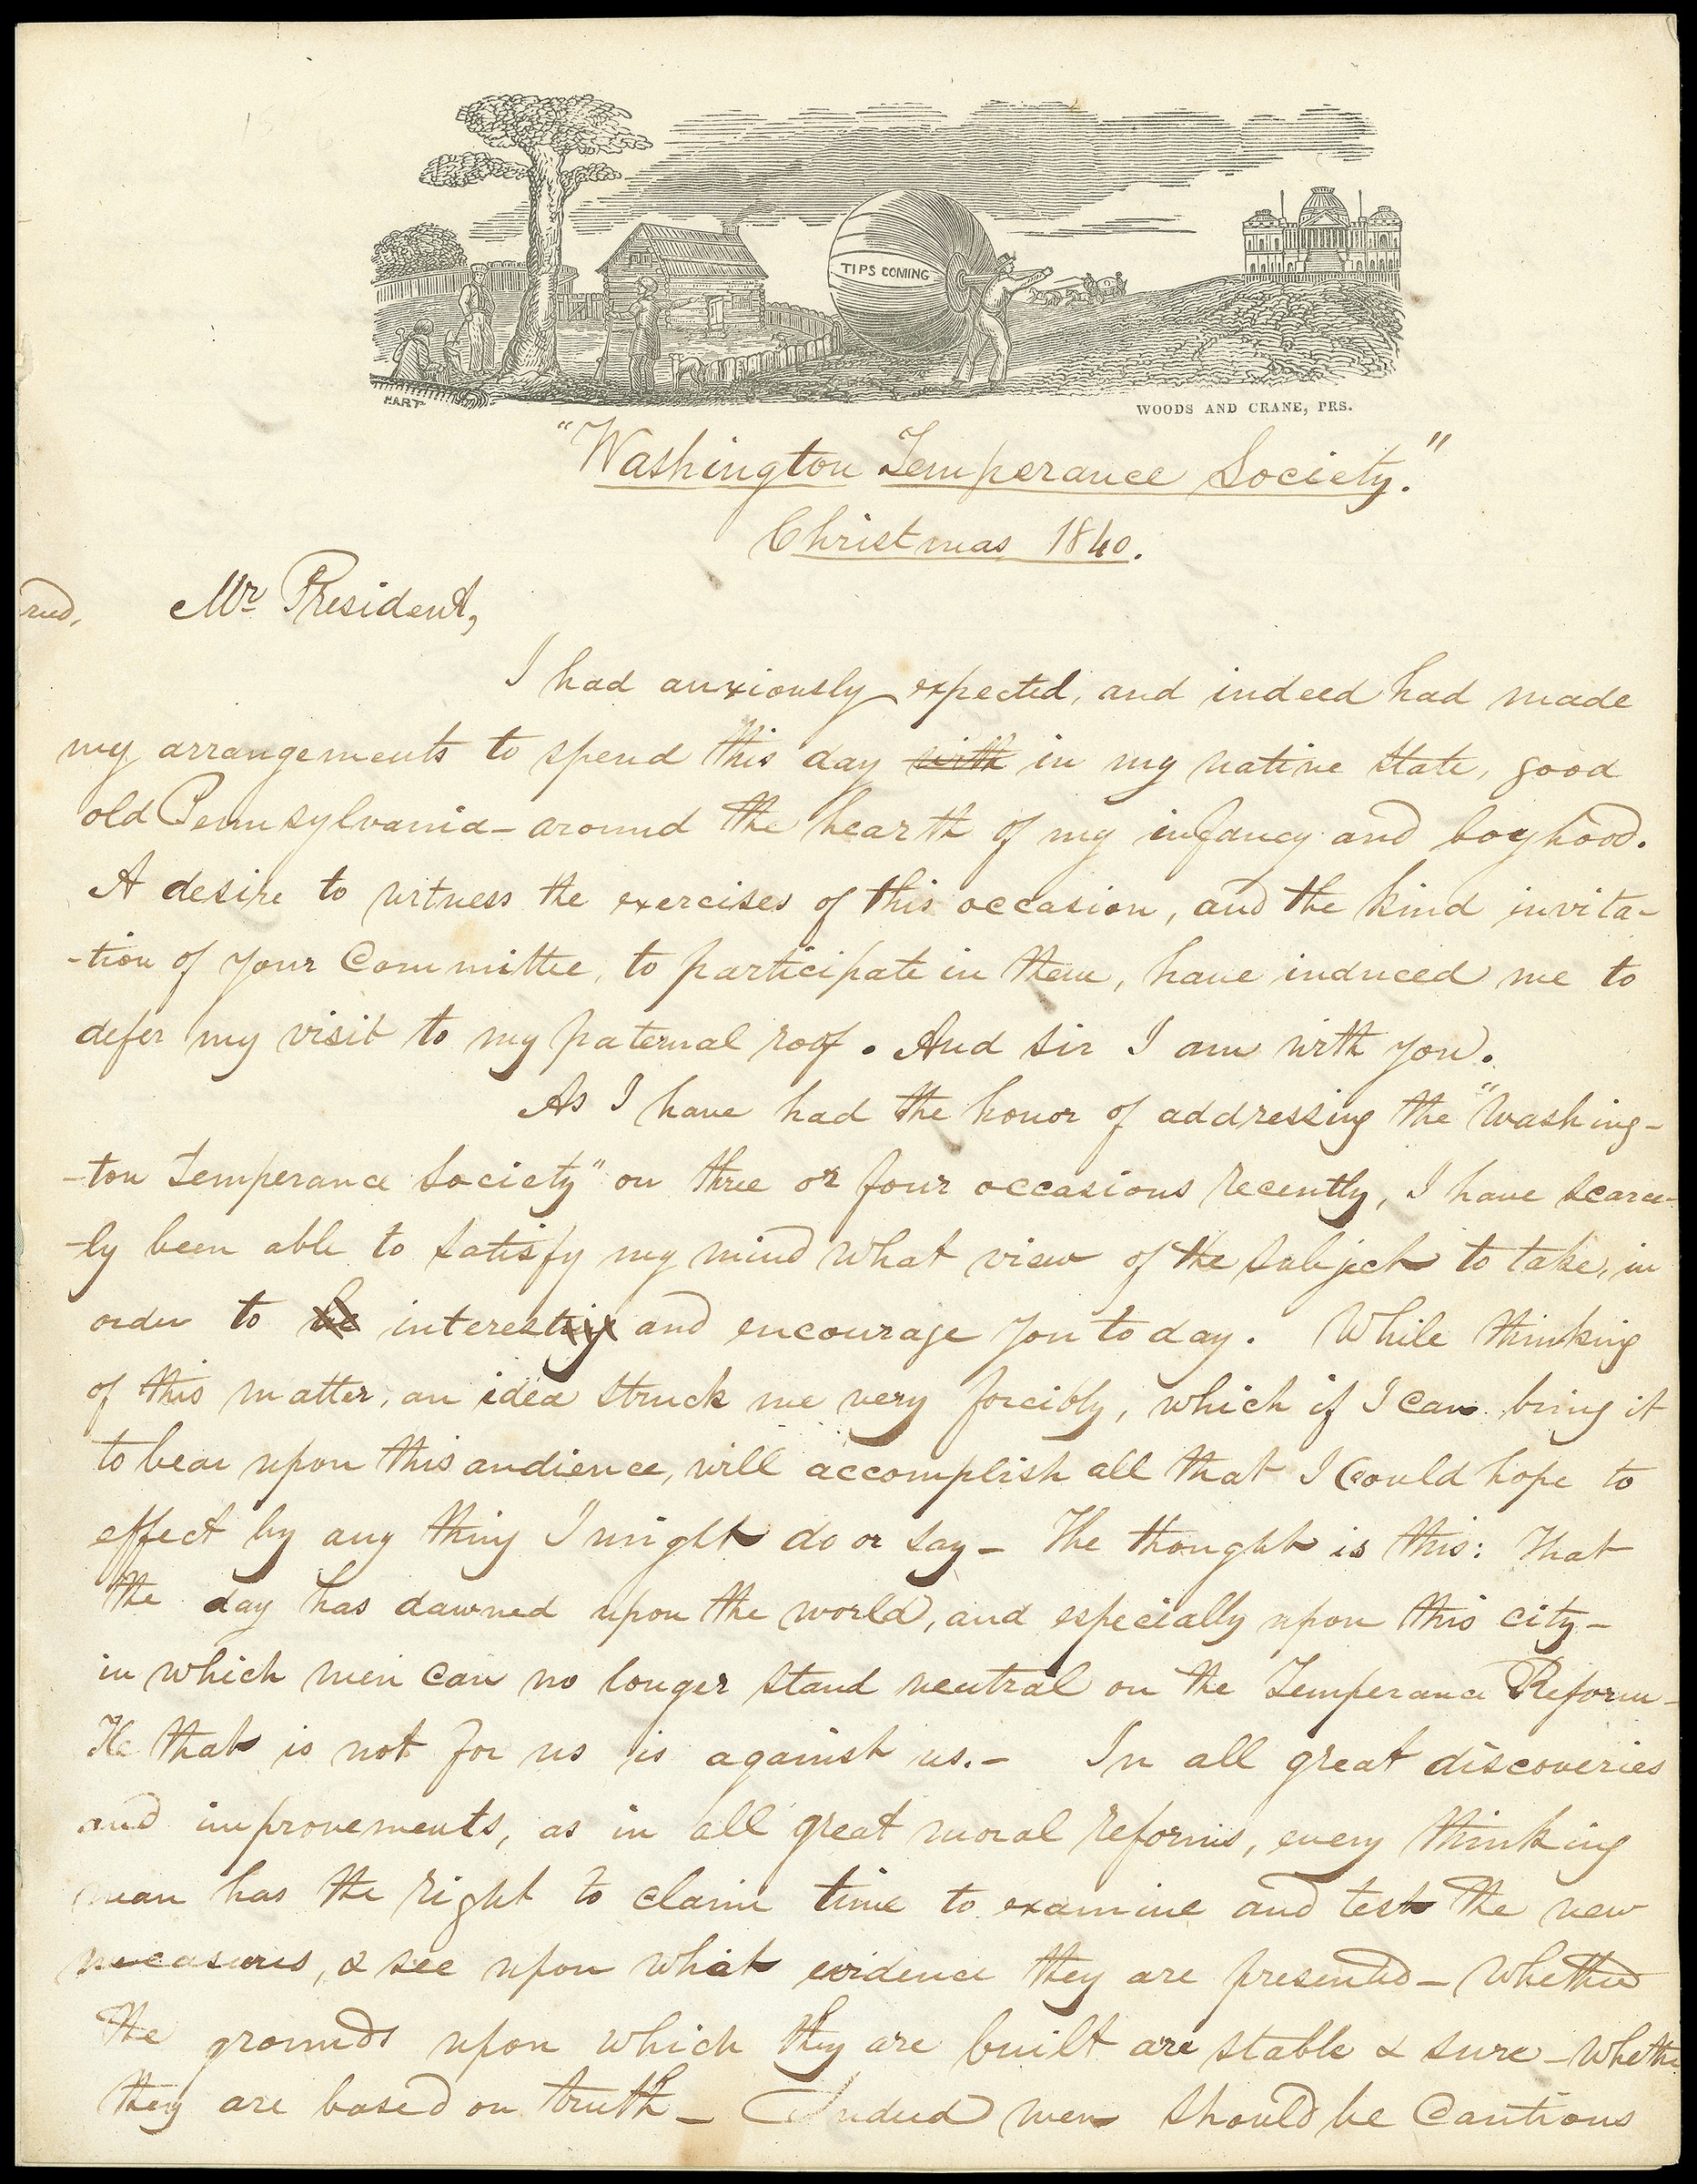 TIPS COMING
HART
WOODS AND CRANE, PRS.
"Washington Temperance Society."
Christmas 1840.
Mr President,
I had anxiously expected, and indeed had made
my arrangements to spend this day with in my native state, good
old Pennsylvania - around the hearth of my infancy and boyhood.
A desire to witness the exercises of this occasion, and the kind invita-
-tion of your Committee, to participate in them, have induced me to
defer my visit to my paternal roof. And sir I am with you.
As I have had the honor of addressing the "Washing-
-ton Temperance Society" on three or four occasions recently, I have scarce-
-ly been able to satisfy my mind what view of the subject to take, in
order to be interesting and encourage you to day. While thinking
of this matter, an idea struck me very forcibly, which if I can bring it
to bear upon this audience, will accomplish all that I could hope to
effect by any thing I might do or say - The thought is this: That
the day has dawned upon the world, and especially upon this city -
in which men can no longer stand neutral on the Temperance Reform -
He that is not for us is against us. - In all great discoveries
and improvements, as in all great moral reforms, every thinking
man has the right to claim time to examine and test the new
measures, & see upon what evidence they are presented - Whether
the grounds upon which they are built are stable & sure - Whether
they are based on truth - Indeed men should be Cautious